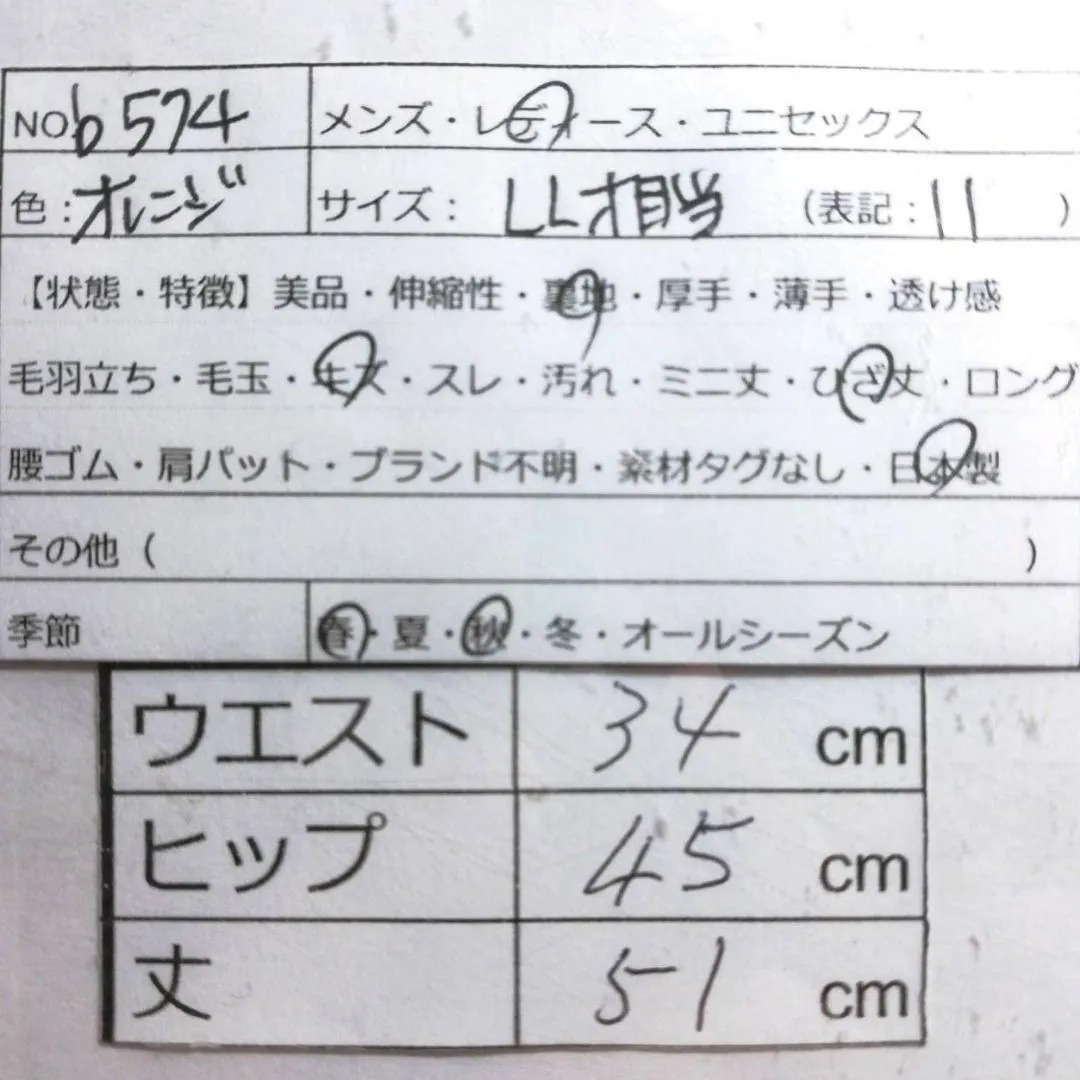 NO b574 メンズ・レディース・ユニセックス
色：オレンジ サイズ： LL才相当 （表記：11 ）
【状態・特徴】美品・伸縮性・裏地・厚手・薄手・透け感
毛羽立ち・毛玉・キズ・スレ・汚れ・ミニ丈・ひざ丈・ロング
腰ゴム・肩パット・ブランド不明・素材タグなし・日本製
その他（ ）
季節 春・夏・秋・冬・オールシーズン
ウエスト 34 cm
ヒップ 45 cm
丈 51 cm